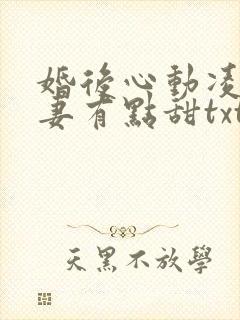 婚後心動凌
妻有點甜txt
天黑不放學